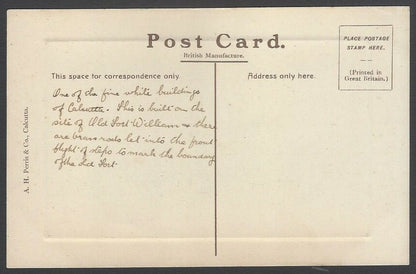 Post Card.
British Manufacture.
This space for correspondence only.
Address only here.
PLACE POSTAGE
STAMP HERE.
(Printed in
Great Britain.)
One of the fine white buildings
of Calcutta. This is built on the
site of Old Fort William & there
are brass rods let into the front
flight of steps to mark the boundary
of the Old Fort
A. H. Perris & Co., Calcutta.